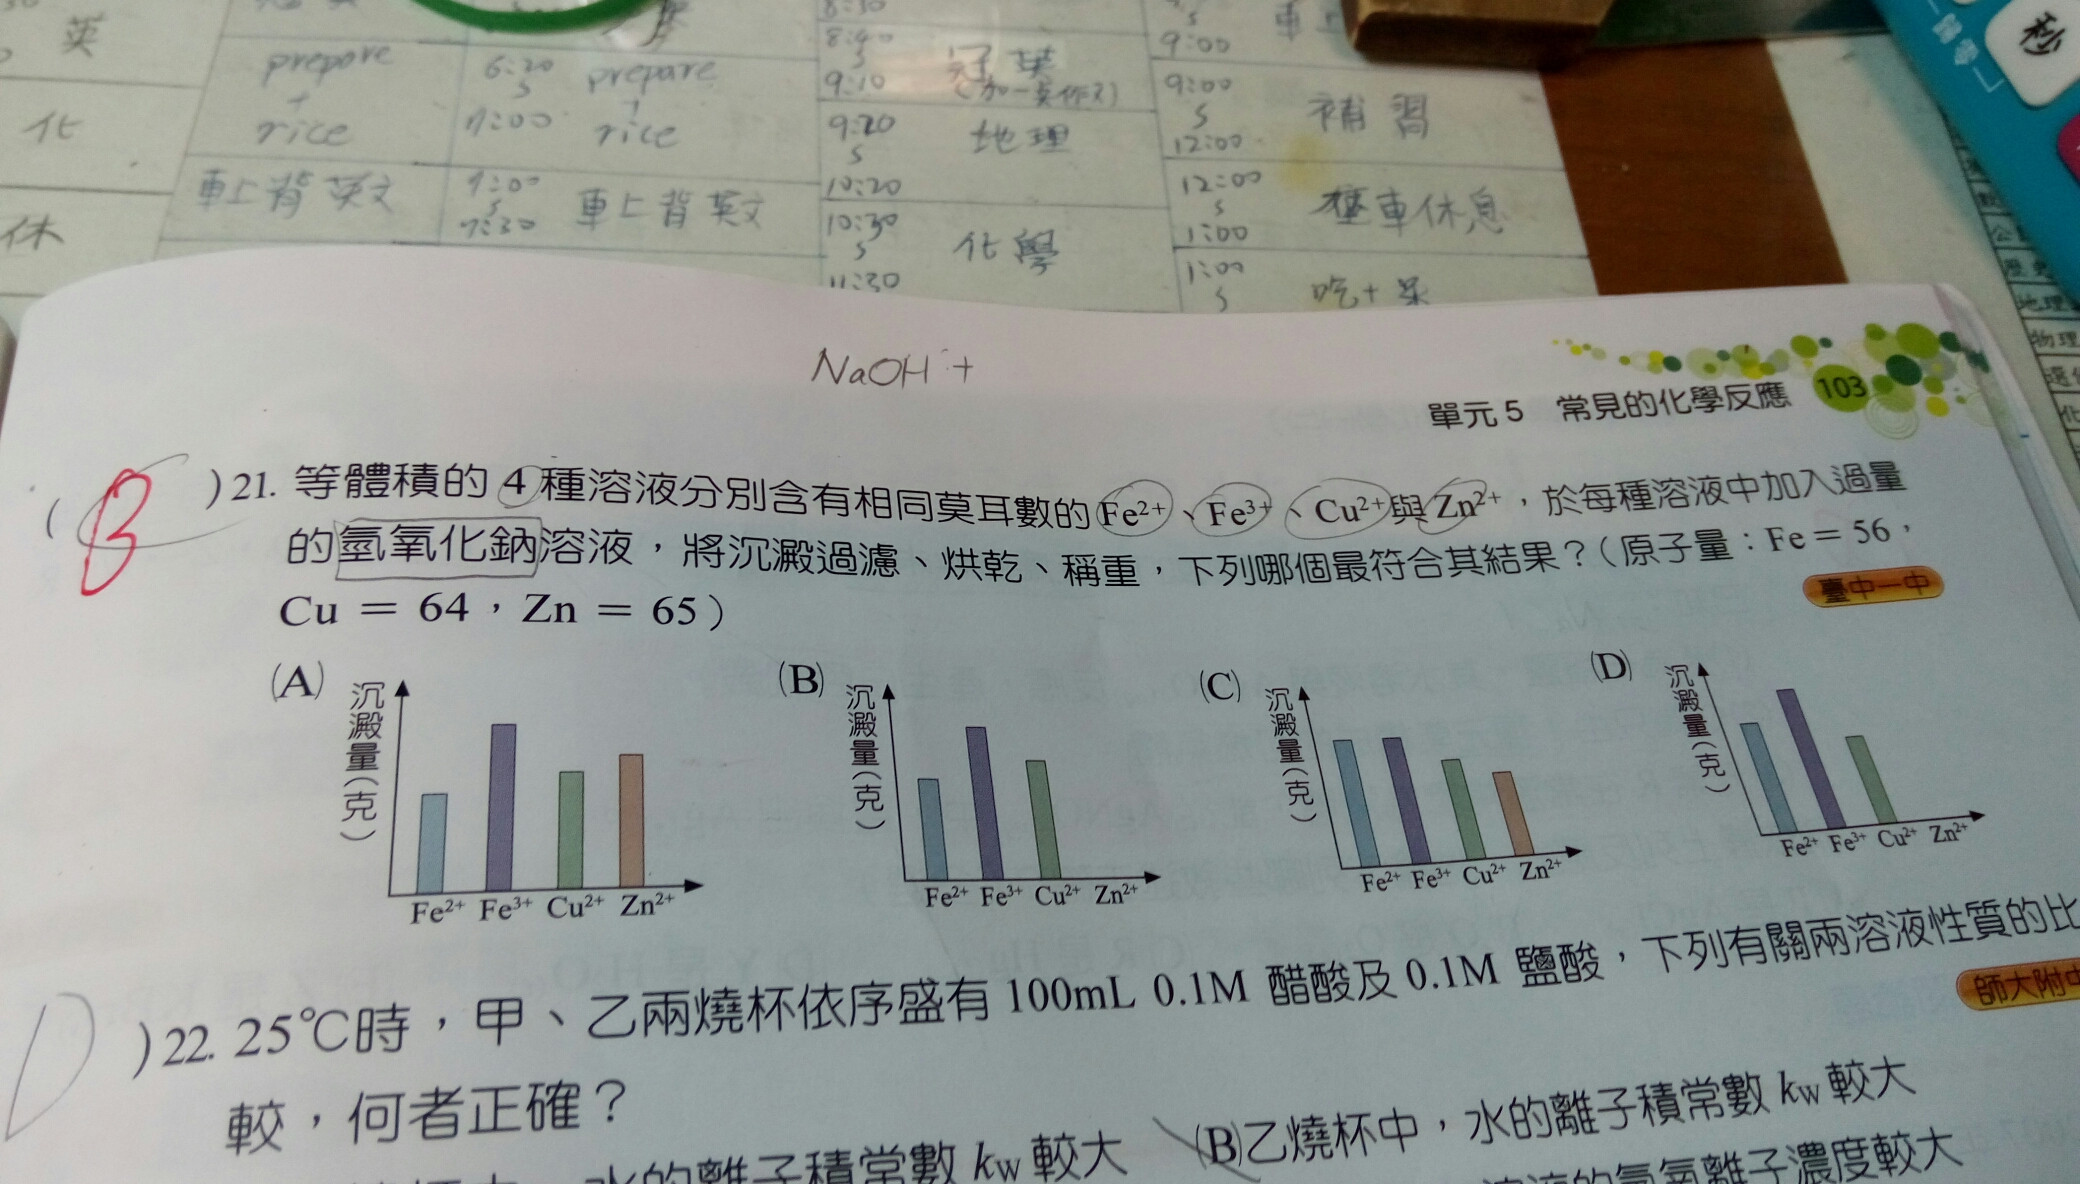 英
prepare
+
rice
6:20
s
7:00
prepare
+
rice
8:30
8:40
s
9:10
9:00
9:00
s
12:00
補習
化
9:20
s
10:20
地理
車上背英文
7:00
s
7:30
車上背英文
12:00
s
1:00
休
10:30
s
11:30
化學
1:00
s
秒
物理
NaOH +
單元5 常見的化學反應 103
( B )21. 等體積的 4 種溶液分別含有相同莫耳數的 Fe²⁺、Fe³⁺、Cu²⁺與 Zn²⁺,於每種溶液中加入過量
的氫氧化鈉溶液,將沉澱過濾、烘乾、稱重,下列哪個最符合其結果?(原子量:Fe = 56,
Cu = 64,Zn = 65) 臺中一中
(A) 沉澱量(克) Fe²⁺ Fe³⁺ Cu²⁺ Zn²⁺
(B) 沉澱量(克) Fe²⁺ Fe³⁺ Cu²⁺ Zn²⁺
(C) 沉澱量(克) Fe²⁺ Fe³⁺ Cu²⁺ Zn²⁺
(D) 沉澱量(克) Fe²⁺ Fe³⁺ Cu²⁺ Zn²⁺
D )22. 25℃時,甲、乙兩燒杯依序盛有 100mL 0.1M 醋酸及 0.1M 鹽酸,下列有關兩溶液性質的比
較,何者正確? 師大附中
水的離子積常數 kw 較大 (B)乙燒杯中,水的離子積常數 kw 較大
溶液的氫氧離子濃度較大